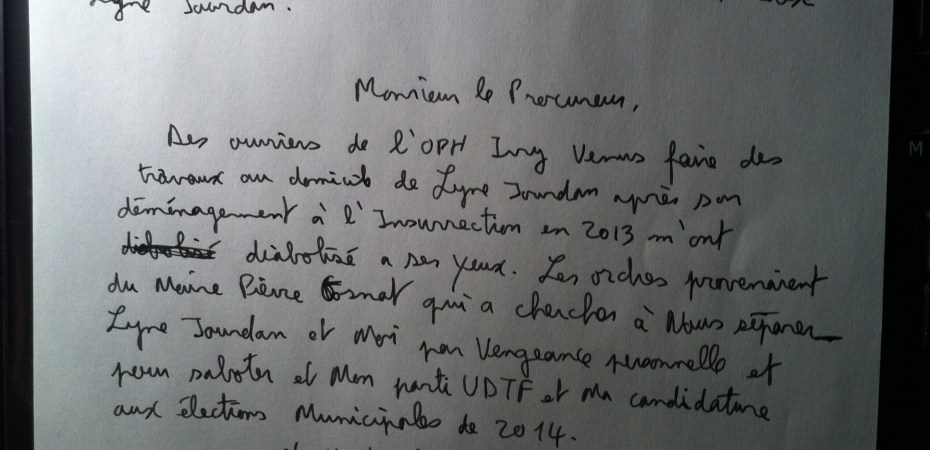 Lyne Jourdan.
Monsieur le Procureur,
Des ouvriers de l'OPH Ivry Venus faire des
travaux au domicile de Lyne Jourdan après son
déménagement à l'Insurrection en 2013 m'ont
diabolisé diabolisé a ses yeux. Les ordres provenaient
du Maire Pierre Gosnat qui a chercher à Nous séparer
Lyne Jourdan et Moi par Vengeance personnelle et
pour saboter et Mon parti UDTF et Ma candidature
aux élections Municipales de 2014.